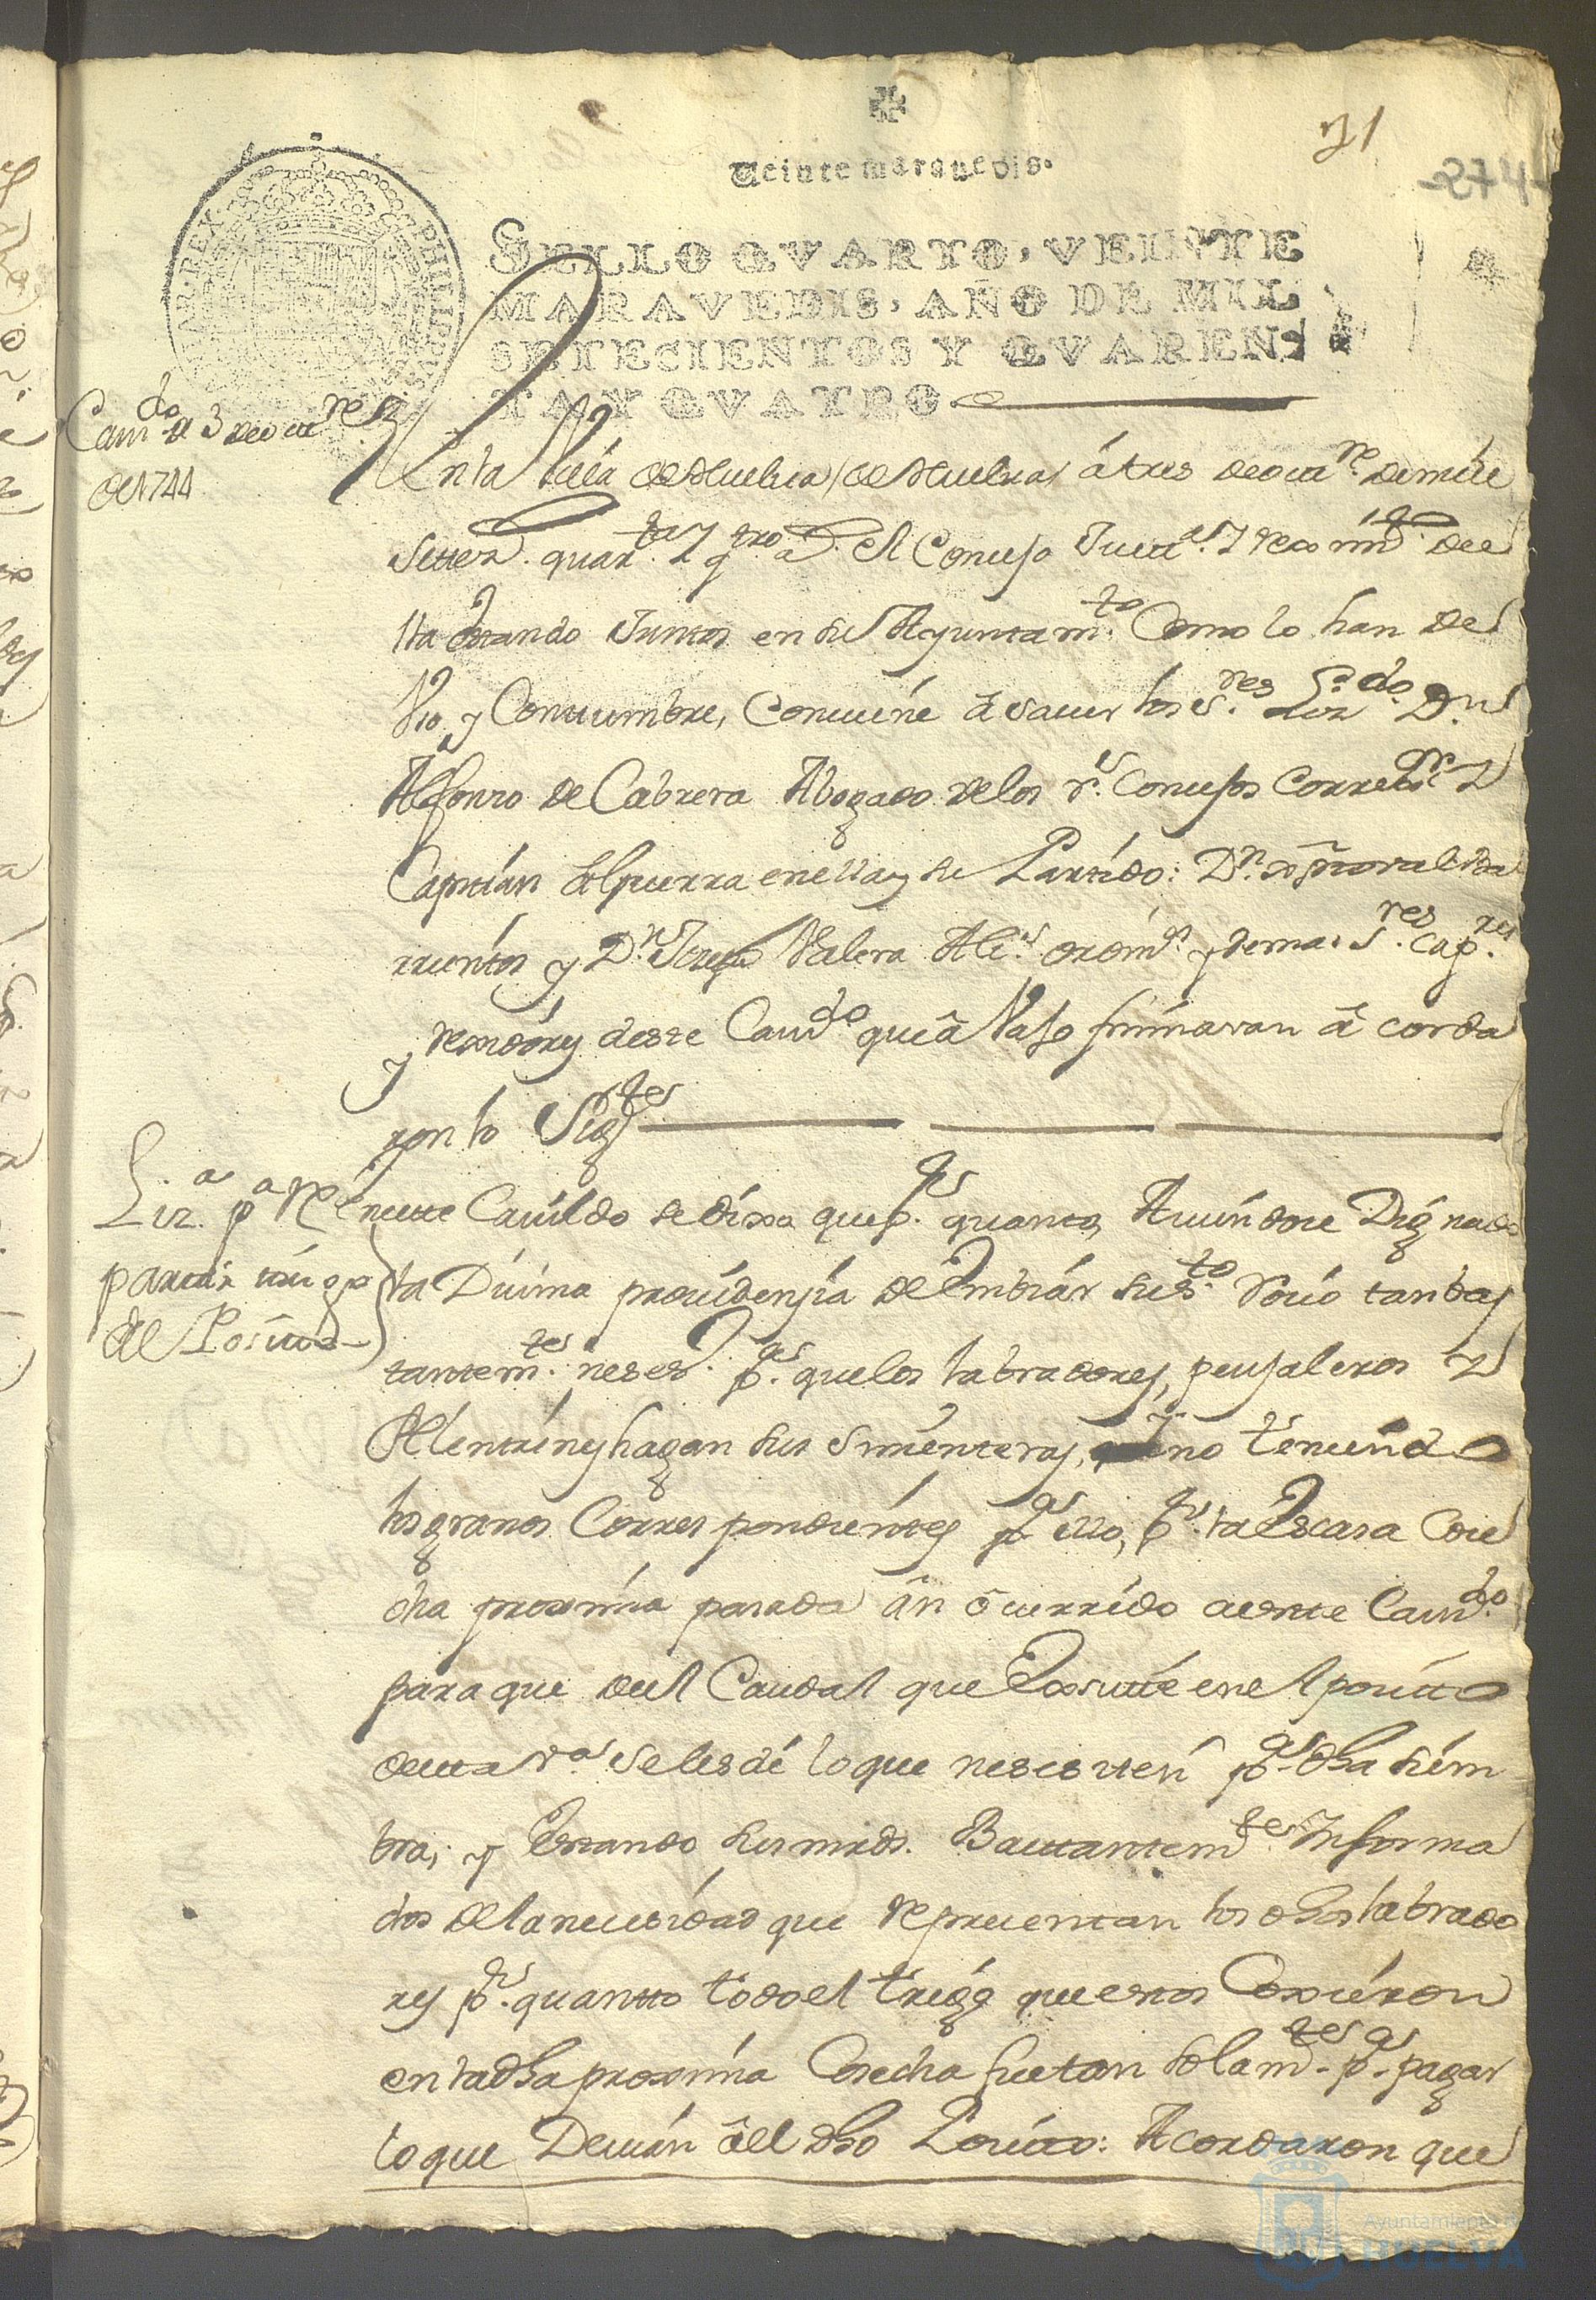 71
Ueinte marauedis.
274
SELLO QVARTO, VEINTE
MARAVEDIS, AÑO DE MIL
SETECIENTOS Y QVAREN
TA Y QVATRO
PHILIPPUS
REX
Cavdo de 3 de octre
de 1744
En la Villa de Huelva (de Huelva) á tres de octre de mill
settez. quarta y qtro as. el Concejo Justa y reximto de
lla estando Juntos en su Ayuntamto Como lo han de
Vso y Constumbre, Conuiene á sauer los Sres Lizdo Dn
Alfonso de Cabrera Abogado de los rs Consejos Correxor y
Capitán à Guerra en ella y su Partido: Dn
rrientos y Dn Joseph Valera Alcs ordins y demas Sres Capres
y rexidores deste Cavdo que â Vajo firmaran â corda
ron lo Sigte
Liza pa Re
partir trigo
del Posito
En este Cauildo se dixo que pr quanto, Auiendose Dignado
la Diuina prouidenzia de Embiár su sto Rocio tan bas
tantemte neseso pa que los labradores, peujaleros y
Pelentrines hagan sus simenteras, y no teniendo
los granos Correspondientes pa ello, pr la Escasa Cose
cha proxima pasada ân ôcurrido a este Cavdo
para que del Caudal que Exsiste en el posito
desta Va se les dé lo que nesesiten pa dha siem
bra; y Estando sus mrds. Bastantemte Informa
dos de la nesesidad que representan los dhos labrado
res pr quantto todo el trigo que estos Coxieron
en la dha proxima Cosecha fue tan solamte pa pagar
lo que Deuían âel dho Posito: Acordaron que
Ayuntamiento de
HUELVA